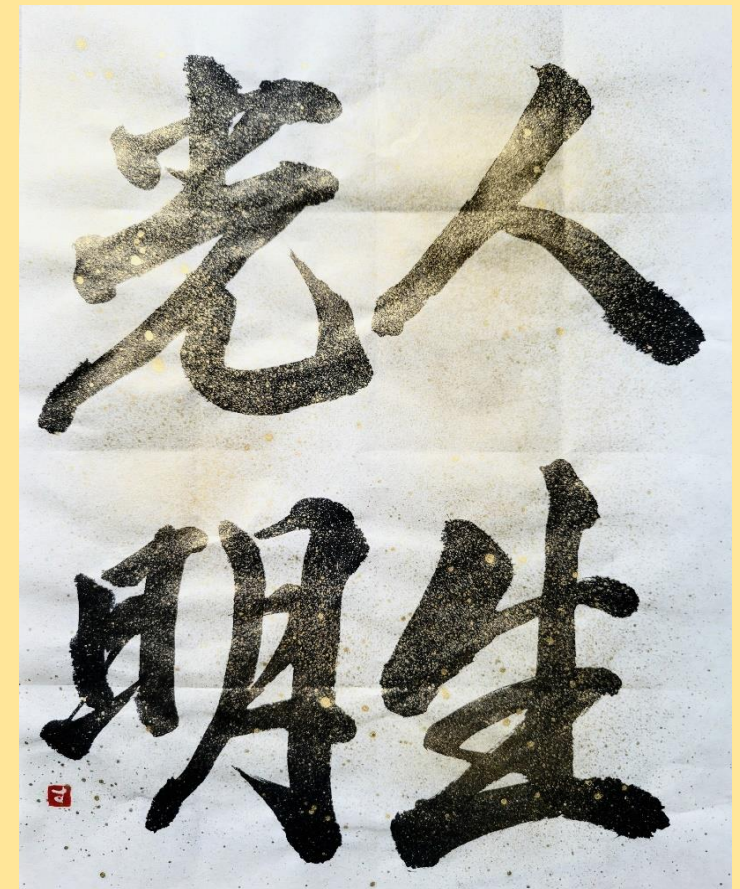 人生
光明